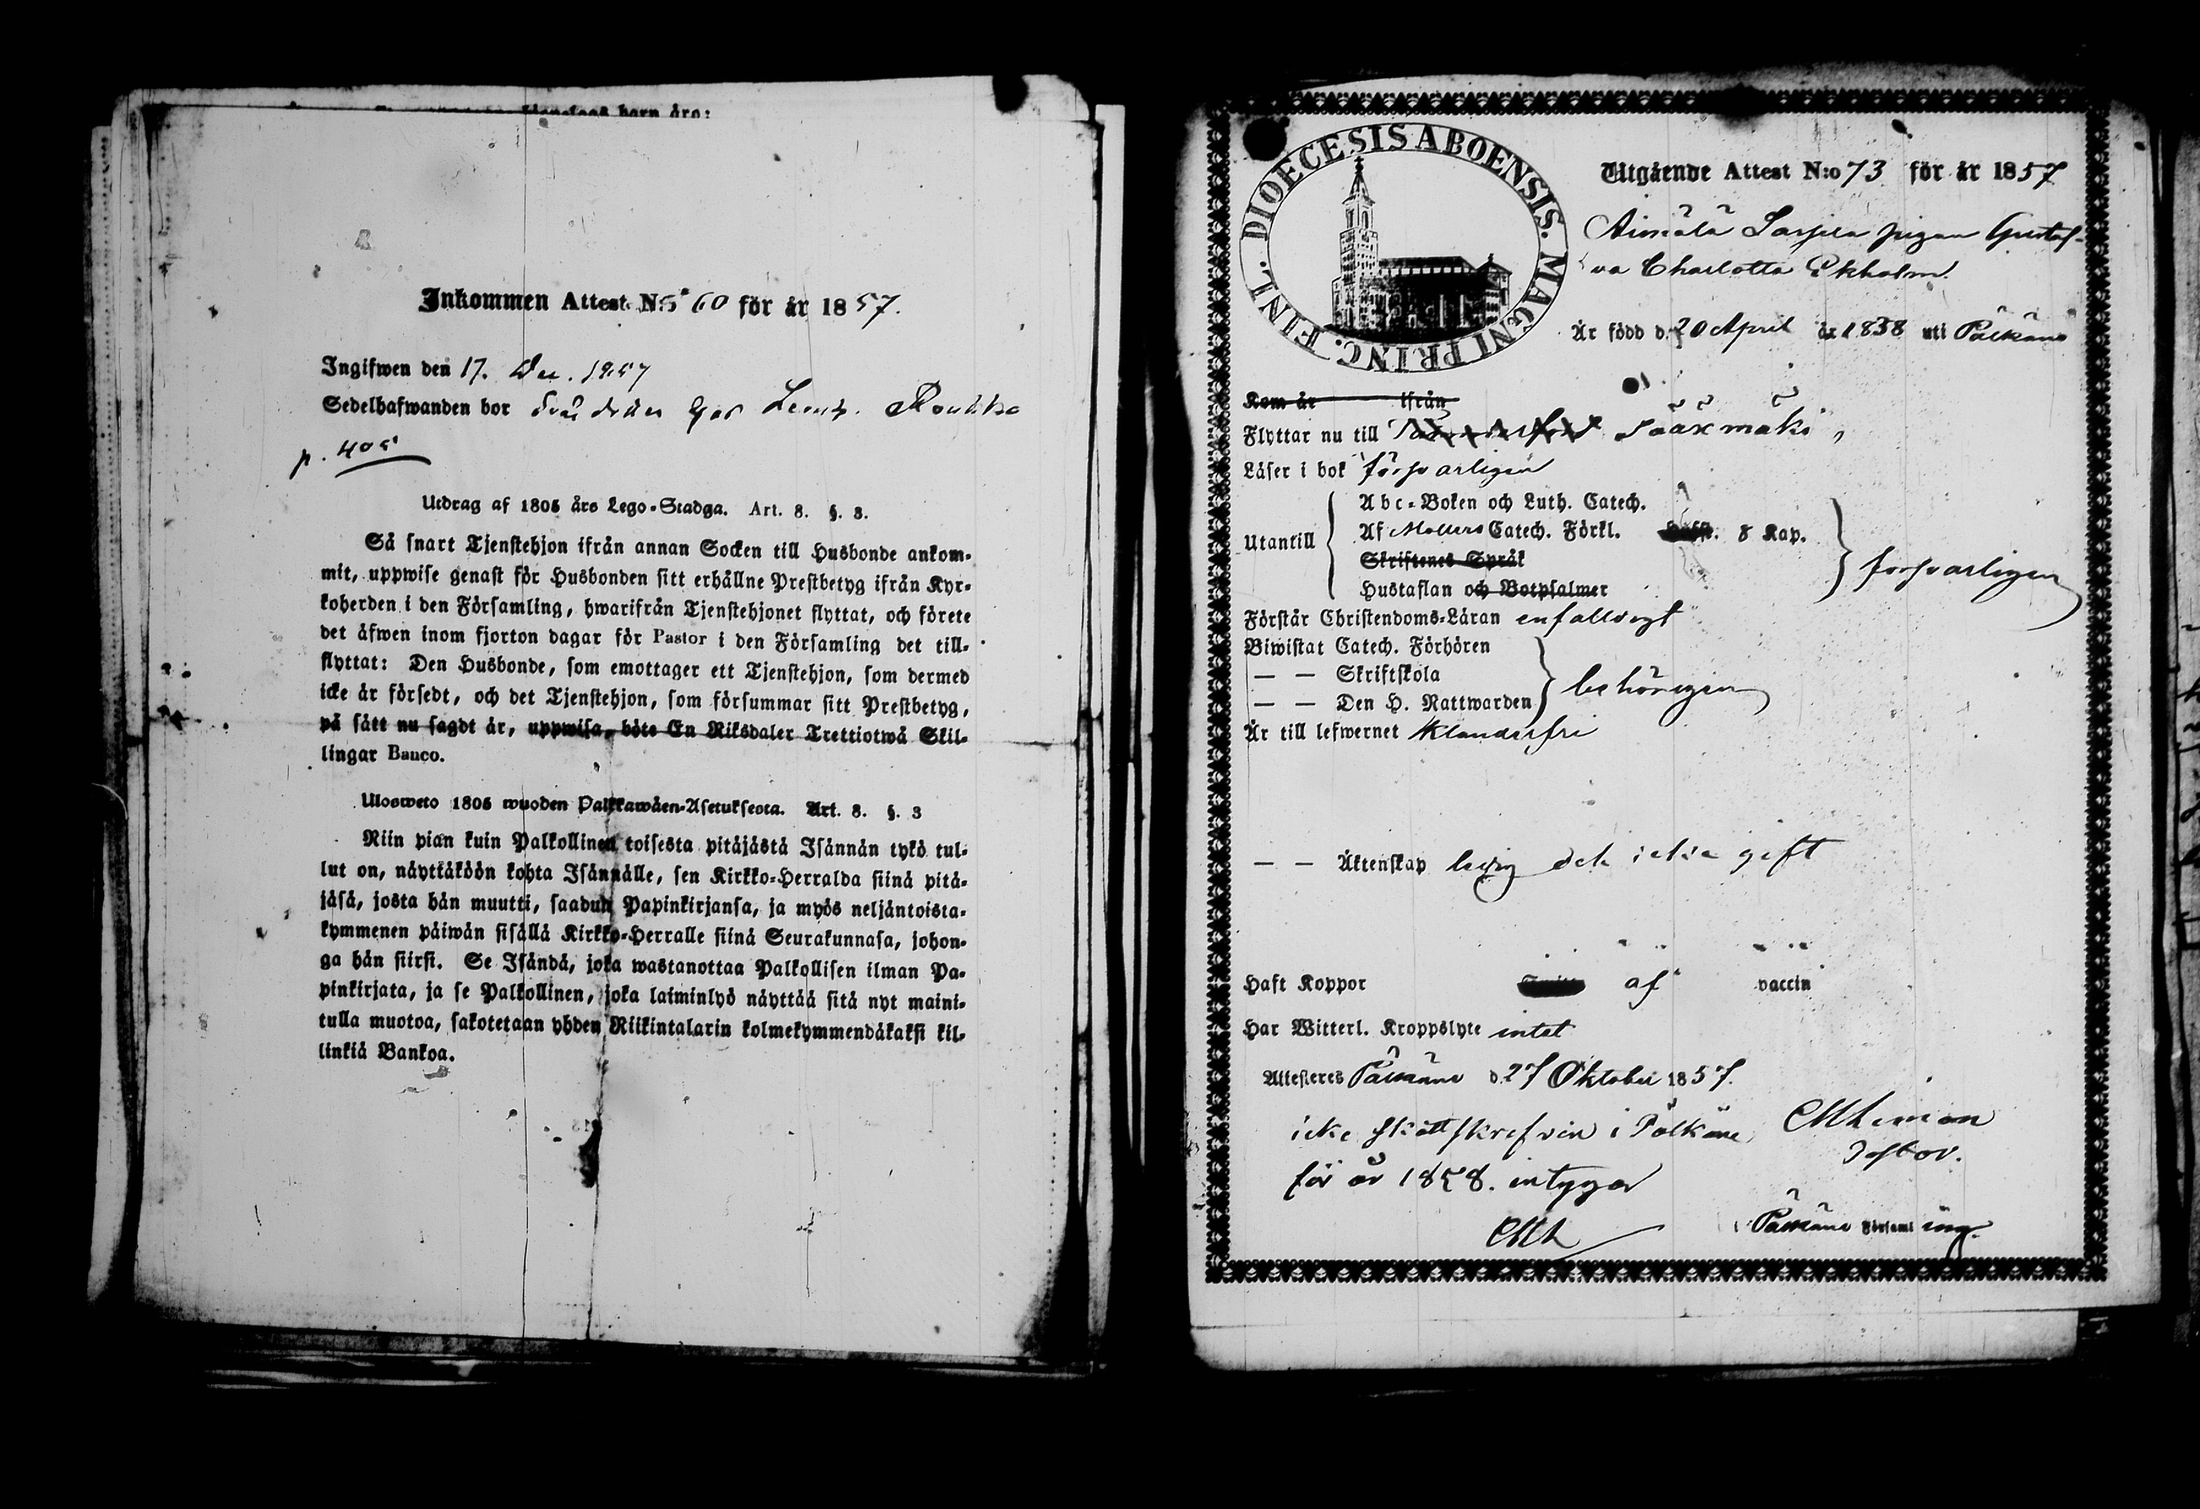 barn äro:
Inkommen Attest N:o 60 för år 1857.
Ingifwen den 17. Dec. 1857
Sedelhafwanden bor
p. 405
Utdrag af 1805 års Lego-Stadga. Art. 8. §. 3.
Så snart Tjenstehjon ifrån annan Socken till Husbonde ankom-
mit, uppwise genast för Husbonden sitt erhållne Prestbetyg ifrån Kyr-
koherden i den Församling, hwarifrån Tjenstehjonet flyttat, och förete
det äfwen inom fjorton dagar för Pastor i den Församling det till-
flyttat: Den Husbonde, som emottager ett Tjenstehjon, som dermed
icke är försedt, och det Tjenstehjon, som försummar sitt Prestbetyg,
på sätt nu sagdt är, uppwisa, böte En Riksdaler Trettiotwå Skil-
lingar Banco.
Ulosweto 1805 wuoden Palkkawäen-Asetuksesta. Art. 8. §. 3
Niin pian kuin Palkollinen toisesta pitäjästä Isännän tykö tul-
lut on, näyttäköön kohta Isännälle, sen Kirkko-Herralda siinä pitä-
jäsä, josta hän muutti, saadun Papinkirjansa, ja myös neljäntoista-
kymmenen päiwän sisällä Kirkko-Herralle siinä Seurakunnasa, johon-
ga hän siirsi. Se Isändä, joka wastanottaa Palkollisen ilman Pa-
pinkirjata, ja se Palkollinen, joka laiminlyö näyttää sitä nyt maini-
tulla muotoa, sakotetaan yhden Riikintalarin kolmekymmendäkaksi kil-
linkiä Bankoa.
DIOECESIS ABOENSIS. MAGNI PRINC. FINL.
Utgående Attest N:o 73 för år 1857
Aimälä pigan Gustaf-
va Charlotta Ekholm.
Är född d. 20 April år 1838 uti Pälkäne
Kom år ifrån
Flyttar nu till Sääxmäki,
Läser i bok försvarligen
Utantill
Abc-Boken och Luth. Catech.
Af Möllers Catech. Förkl. 8 Kap.
Skriftenes Språk
Hustaflan och Botpsalmer
försvarligen
Förstår Christendoms-Läran enfalldigt
Biwistat Catech. Förhören
— — Skriftskola
— — Den H. Nattwarden
behörigen
Är till lefwernet klanderfri
— — Äktenskap ledig och icke gift
Haft Koppor af vaccin
Har Witterl. Kroppslyte intet
Attesteres Pälkäne d. 27 Oktober 1857.
icke skattskrefven i Pälkäne
för år 1858. intygar
Pälkäne Församling.